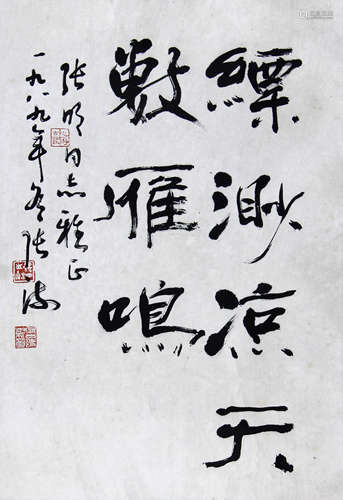 縹渺凉天
數雁鳴
张明同志雅正
一九八九年冬张海